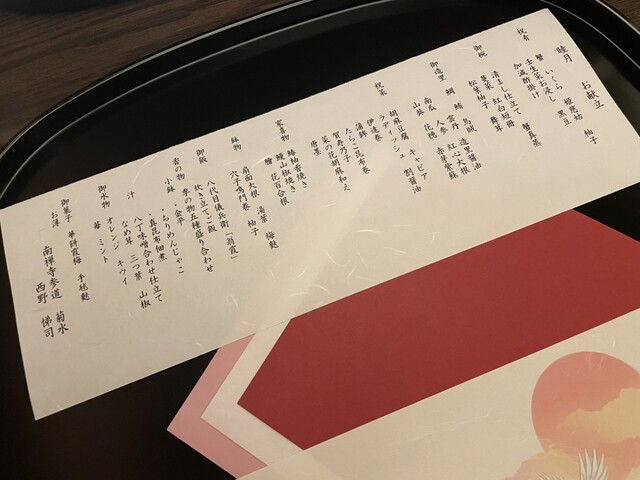 睦月 お献立
祝肴 いくら 姫慈姑 柚子
蟹 壬生菜お浸し 黒豆
加減酢掛け 蟹真薯
御椀 清まし仕立て
蔓菜 紅白短冊 舞茸
松葉柚子
御造里 鯛 鮪 馬賊 造里醤油
南瓜 雲丹 紅心大根
山葵 花穂 人参 赤芽紫蘇
胡麻豆腐 キャビア
ラディッシュ 割醤油
祝菜 伊達巻
蒲鉾
たらこ昆布巻
賀寿乃子
菜の花胡麻和え
唐墨
家喜物 鰆柚香焼き
鰻山椒焼き
鱠 花百合根
鉢物 扇面大根 湯葉 梅麩
穴子鳴門巻 柚子
御飯 八代目儀兵衛「翁霞」
炊き立てご飯
香の物 季の物五種盛り合わせ
小鉢 ・金平
・ちりめんじゃこ
・真昆布佃煮
汁 八丁味噌合わせ仕立て
なめ茸 三つ葉 山椒
御水物 オレンジ キウイ
苺 ミント
御菓子 華餅霞梅 手毬麩
お薄
南禅寺参道 菊水
西野 悌司